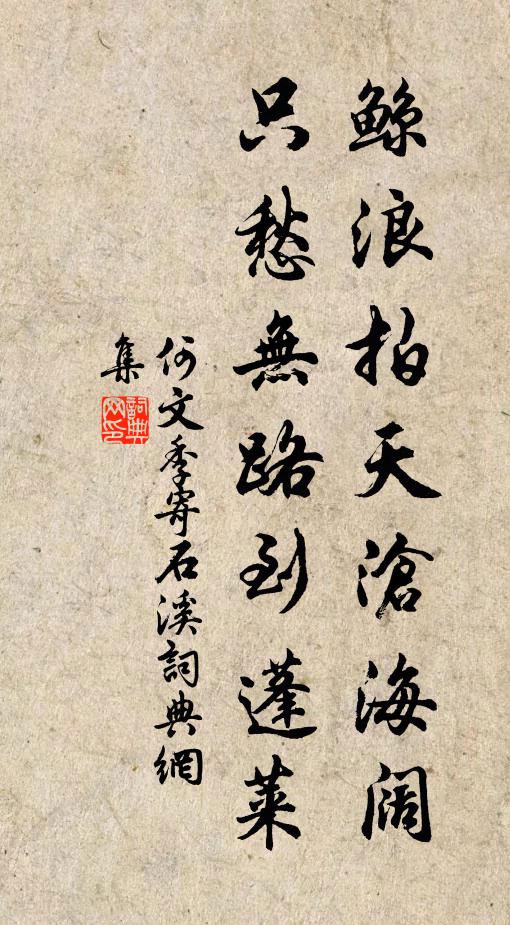 鲸浪拍天滄海阔
只愁無路到蓬萊
何文季寄石溪詞典網
集
詞典網印